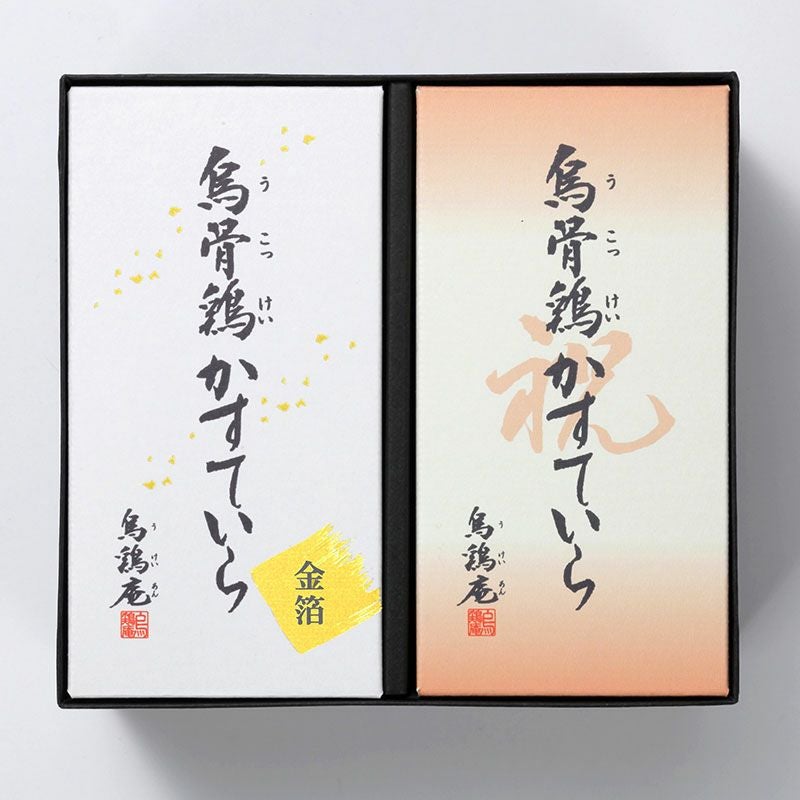 烏骨鶏かすていら
う
こっ
けい
烏鶏庵
う
けい
あん
金箔
烏骨鶏かすていら
う
こっ
けい
祝
烏鶏庵
う
けい
あん